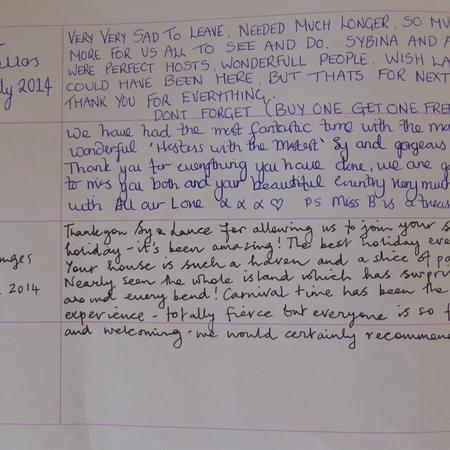 VERY VERY SAD TO LEAVE, NEEDED MUCH LONGER, SO MU
MORE FOR US ALL TO SEE AND DO. SYBINA AND
2014
WERE PERFECT HOSTS, WONDERFULL PEOPLE. WISH LA
COULD HAVE BEEN HERE, BUT THATS FOR NEXT
THANK YOU FOR EVERYTHING.
DONT FORGET (BUY ONE GET ONE FREE
We have had the most fantastic time with the mo
wonderful 'Hostess with the Mostest' Sy and gorgeous
Thank you for everything you have done, we are go
to miss you both and your beautiful country very much
with All our Love x x x ♡ PS Miss B is a treas
Thankyou Sy & Lance for allowing us to join your s
holiday - it's been amazing! The best holiday eve
Your house is such a haven and a slice of pa
Nearly seen the whole island which has surpri
2014
around every bend! Carnival time has been the
experience - totally fierce but everyone is so f
and welcoming - we would certainly recommen